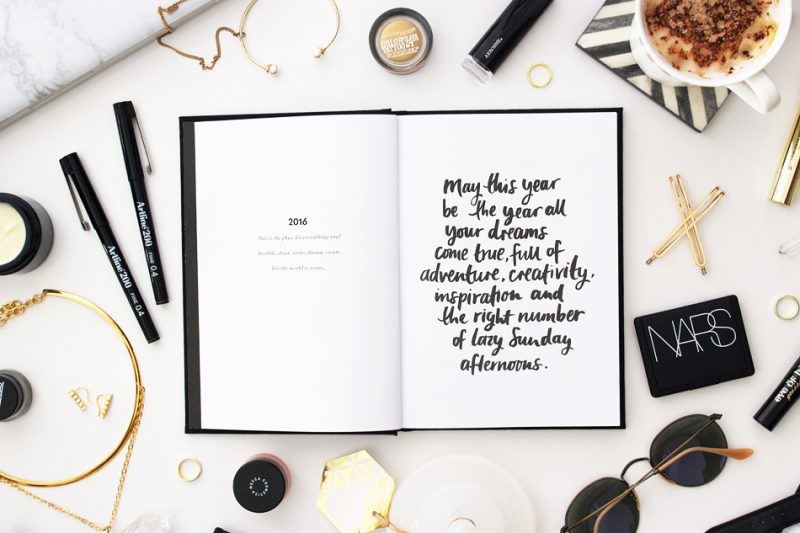 2016
This is the place for everything you!
Scribble, draw, write, dream, create.
For the world is yours...
May this year
be the year all
your dreams
come true, full of
adventure, creativity,
inspiration and
the right number
of lazy Sunday
afternoons.
Artline 200
FINE 0.4
Artline 200
FINE 0.4
NARS
eye OF
MECCA COSMETICA